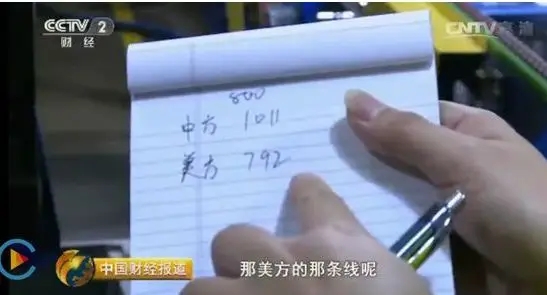 CCTV 2
财经
CNTV 高清
800
中方 1011
美方 792
中国财经报道
那美方的那条线呢